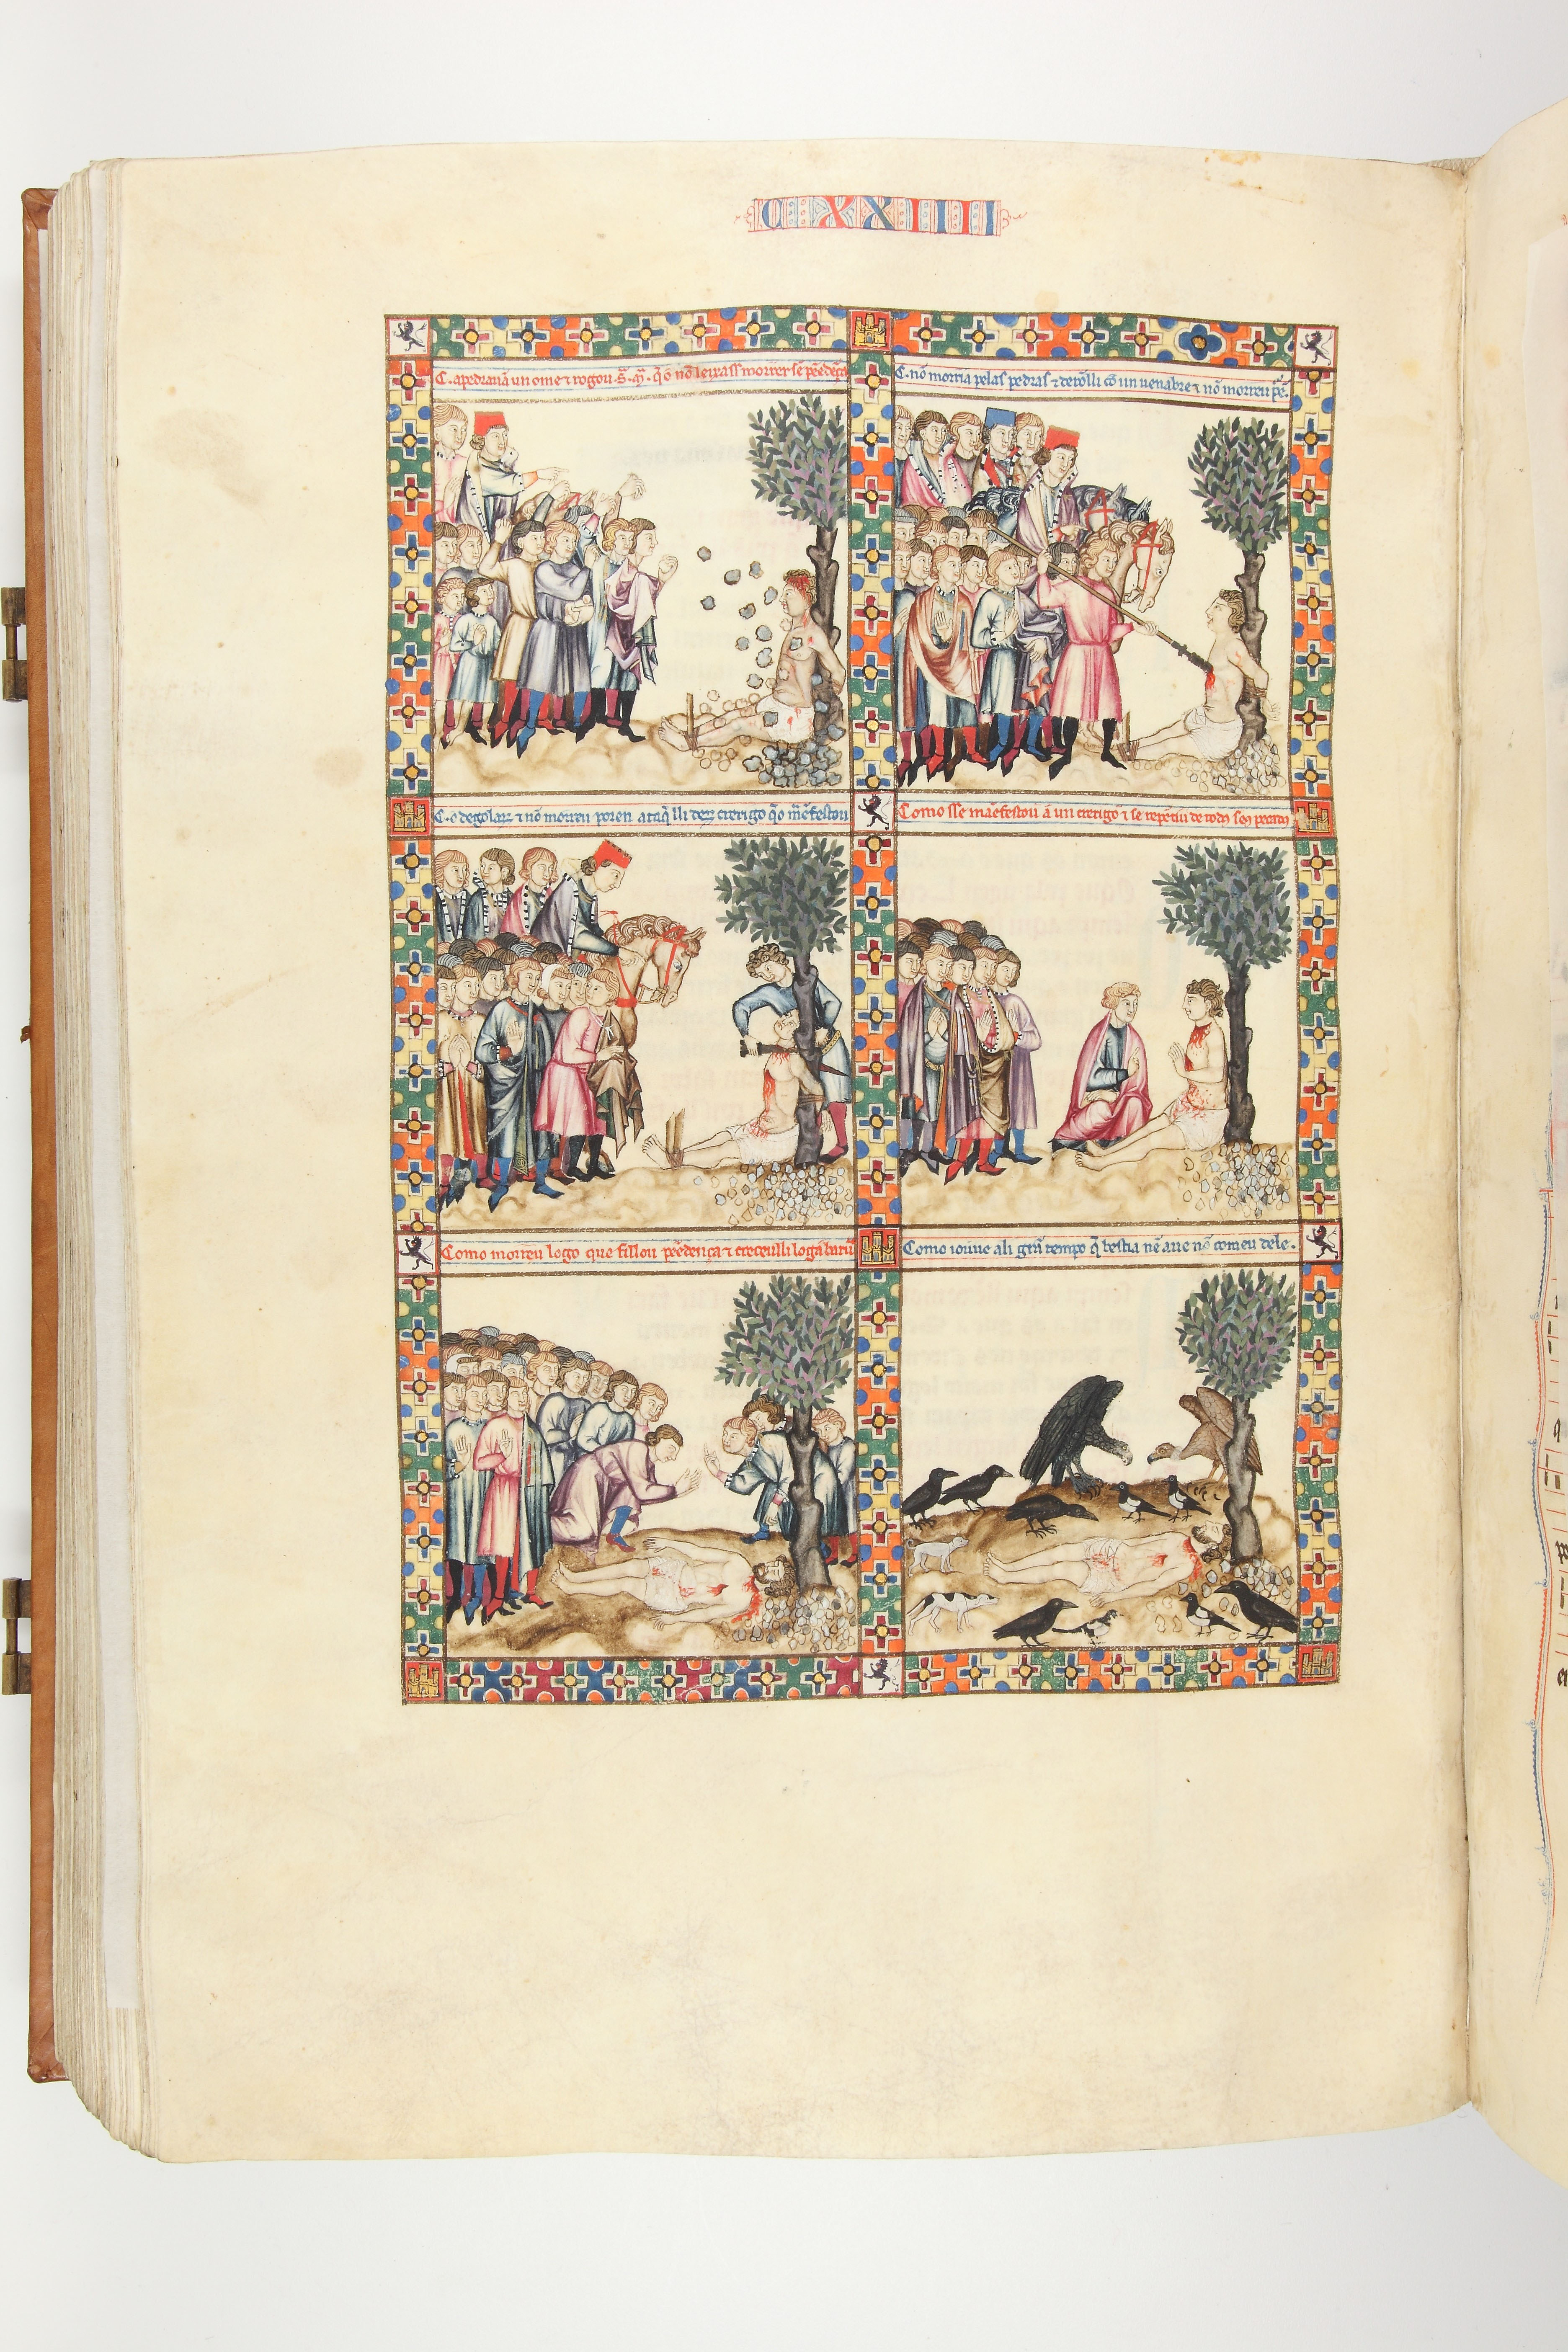 CXXIIII
C. apedrauã un ome ⁊ rogou S. M̃. q̃ o nõ leixass morrer sẽ pẽedẽça
C. nõ morria pelas pedras ⁊ derõlli cõ un uenabre ⁊ nõ morreu
C. o degolarõ ⁊ nõ morreu poren ataq̃ lli derõ crerigo q̃o mãefestou
Como sse mãefestou a un crerigo ⁊ se repẽtiu de todos seos pecados
Como morreu logo que fillou pẽedença ⁊ creceulli logo a barua
Como iouue ali grã tempo q̃ bestia nẽ aue nõ comeu dele.